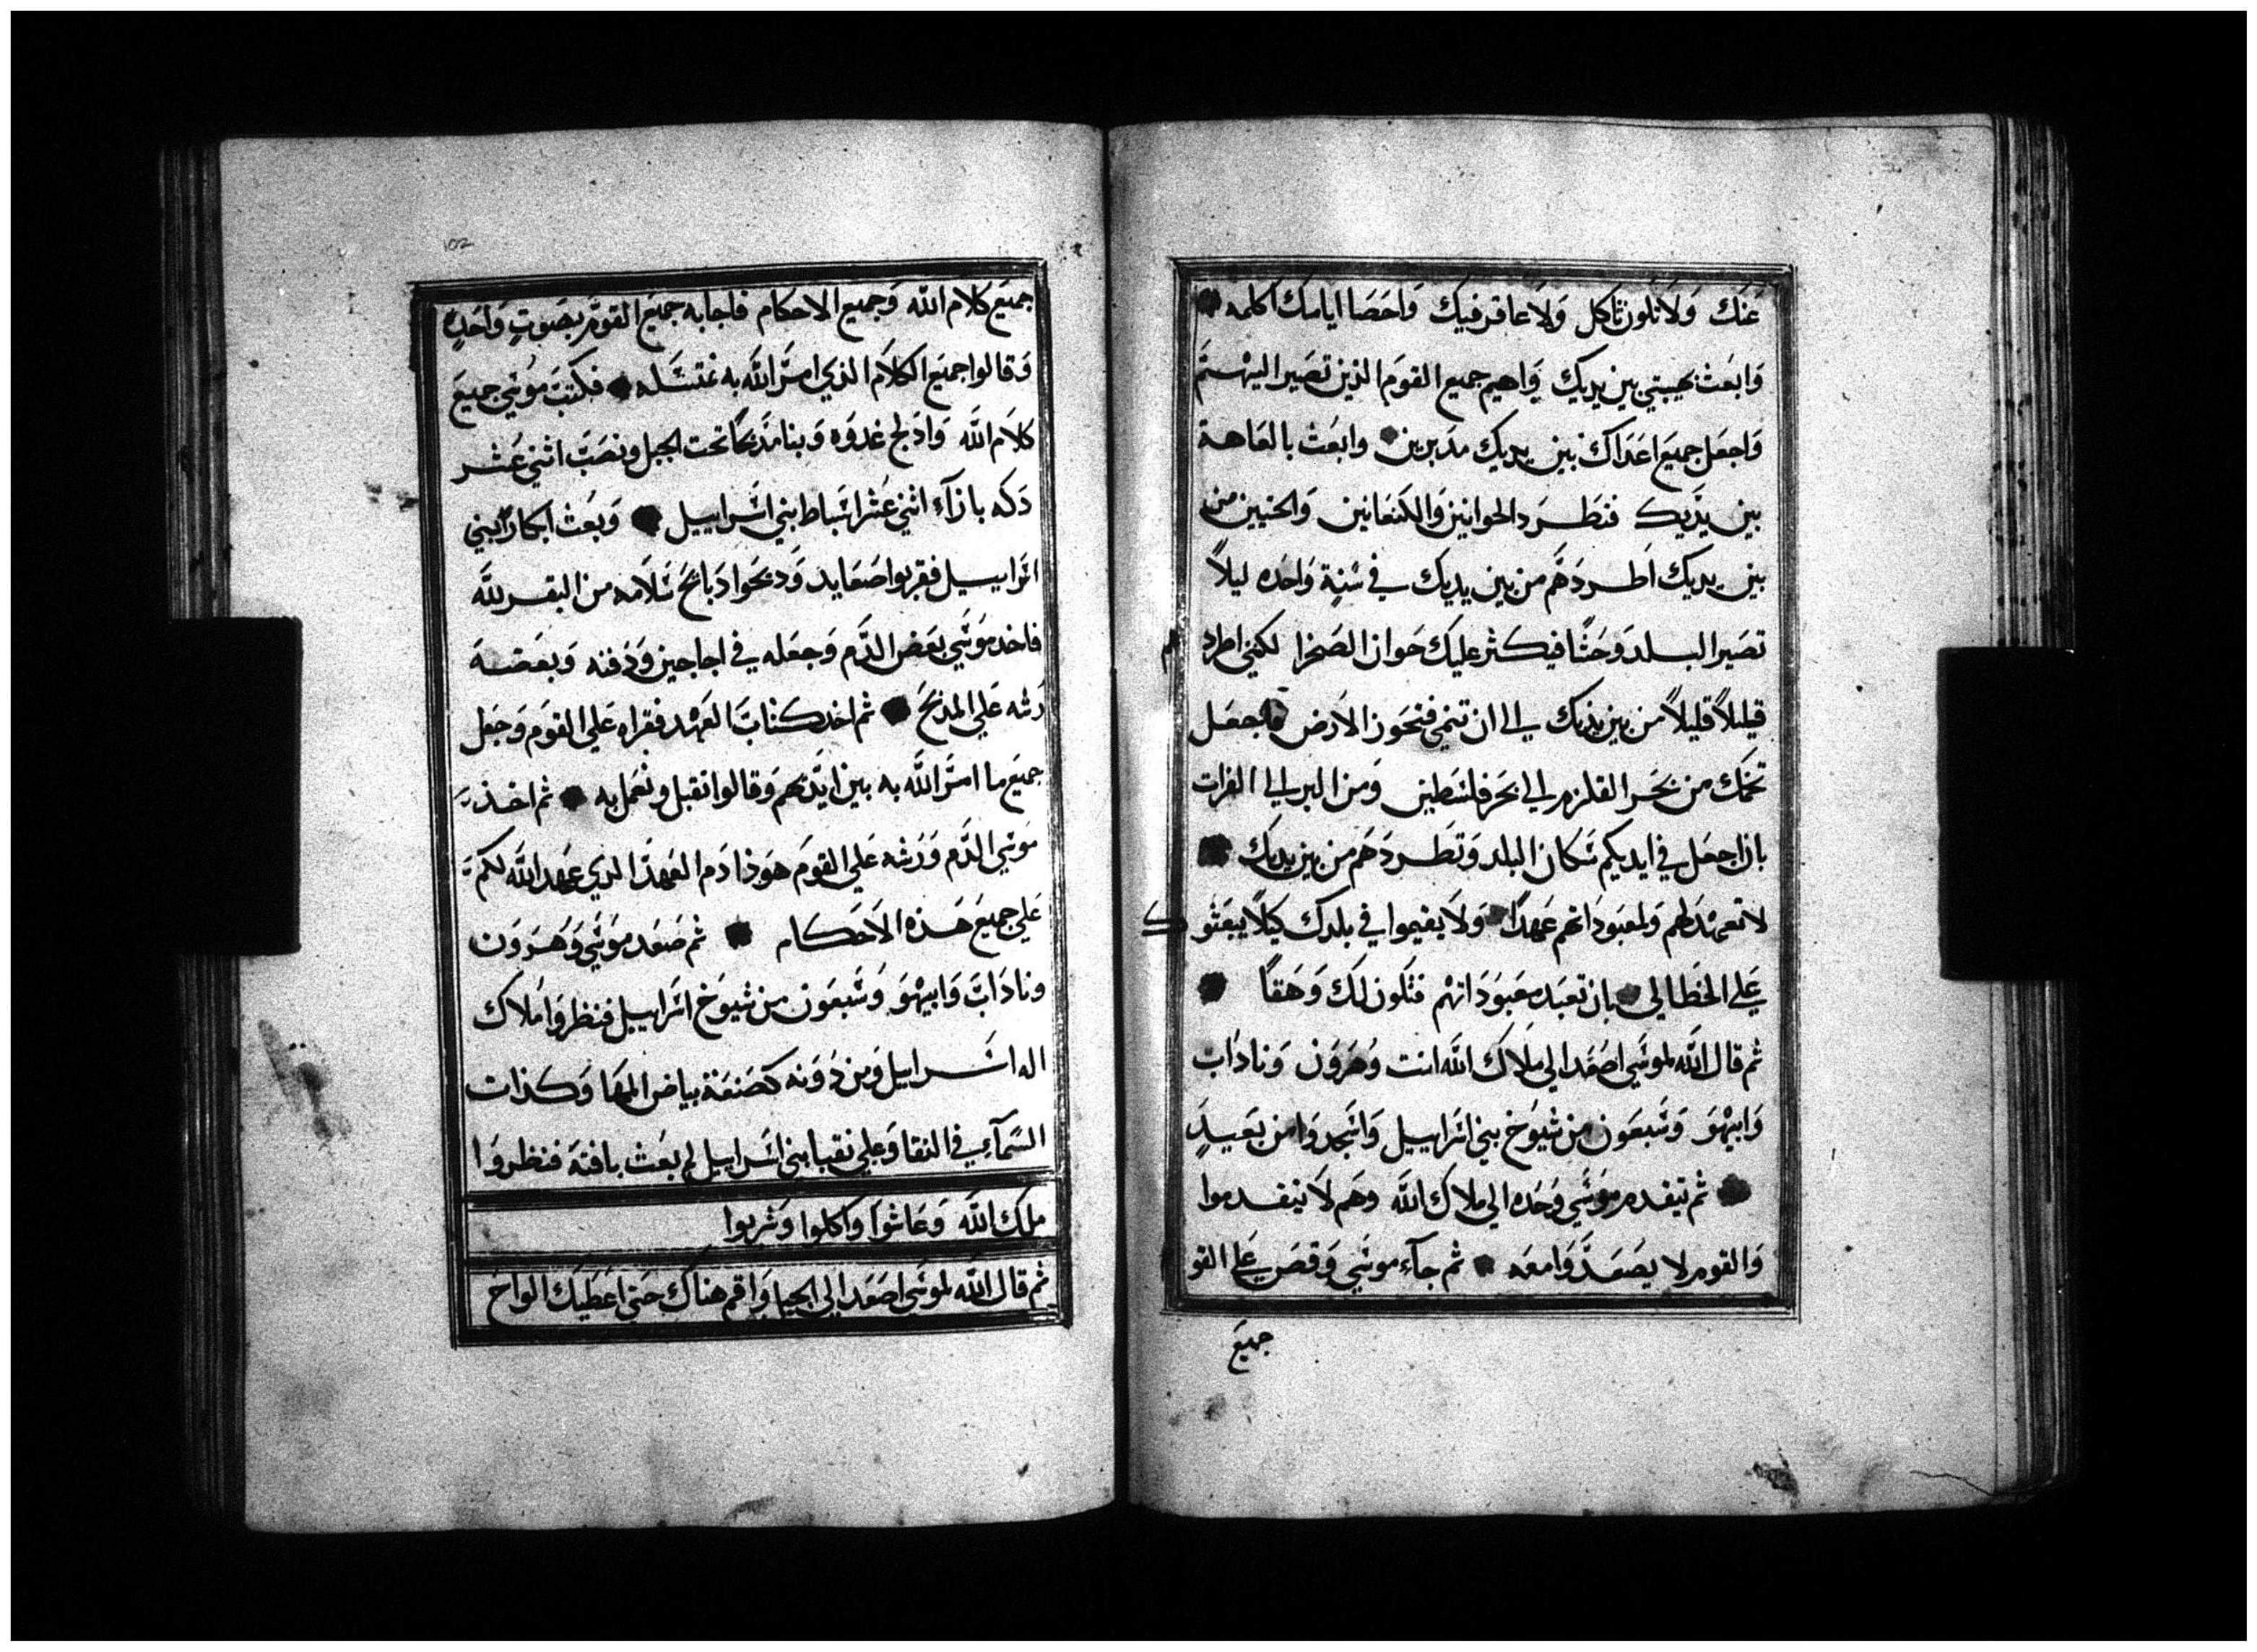 عَنكَ وَلَا تلون ثاكل وَلَا عاقر فيك وَاحصَا ايامك اكلمه
وَابعَث بهيبتي بين يديك وَاهيم جميع القوم الذين تصَير اليهم
وَاجعَل جميع اعَدَاك بين يديك مدبرين وابعَث بالعَاهة
بين يدَيك فنَطرد الحوانيين وَالكنعَانيين وَالحثيين من
بين يديك اطردهَم من بين يديك في سَنةٍ وَاحدَه ليلاً
تصَير البلد وَحشًا فيكثر عليك حَوان الصَخرا لكني اطردهم
قليلاً قليلاً من بين يديك الي ان تنمي فتحَوز الارض فاجعَل
تخمك من بحَر القلزم الي بحَر فلسَطين وَمن البر الي الفرات
بان اجعَل في ايديكم سَكان البلد وَتطَردهَم من بين يديك
لا تعهَد لهم وَلمعَبودَاتهم عَهدًا وَلَا يقيموا في بلدك كيلا يبعَثوك
عَلي الخطَا لي بان تعبَد معَبودَاتهم فتكون لك وَهقاً
ثم قال الله لموسَي اصعَد الي ملاك الله انت وَهرَوَن وَنادَاب
وَابيهَوَ وَسَبعَون من شيوَخ بني اسَراييل وَاسَجدوَا من بَعيدٍ
ثم يتقدم موسَي وَحَده الي ملاك الله وهَم لا يتقدموا
وَالقوم لا يصَعَدَوَا معَه ثم جآء موسَي وَقصَ عَلي القو
جميعَ
102
جميعَ كلام الله وَجميع الاحكام فاجابه جميعَ القوم بصَوتٍ وَاحَدٍ
وَقالوا جميعَ الكلاَم الذي امرَ الله به نمتثَله فكتبَ موسَي جميعَ
كلاَم الله وَادلج غدوَه وَبنا مذبحاً تحت الجبل ونصَبَ اثني عَشر
دَكه بازآء اثني عَشر اسَباط بني اسَراييل وَبعَث ابكار بني
اسَراييل فقربوا صَعَايد وَدبحَوا دَبايحَ سَلامه من البقر لله
فاخد موسَي بعَض الدَم وَجعَله في اجاجين وَدفنه وَبعَضه
رَشه عَلي المدبحَ ثم اخد كتابَ العَهَد فقراه عَلي القوَم وَجعَل
جميعَ ما امرَ الله به بين ايدَيهَم وَقالوا نقبل ونعَمل به ثم اخذ
موَسَي الدَم وَرَشه عَلي القوَم هَوذا دَم العَهدَ الدي عَهَد الله لكم
عَلي جميعَ هَذه الاَحَكام ثم صَعَد موسَي وَهَرَوَن
ونادَابَ وَابيهَوَ وَسَبعَون من شيوَخ اسَراييل فنظروَا ملاك
اله اسَراييل وَمن دُوَنه كصَنعَة بياض المها وَكذات
السَمآء في النقا وَعلي نقبا بني اسَراييل لم يبعَث بافتة فنظروَا
ملك الله وَعَاشوا واكلوا وَشربوا
ثم قال الله لموسَي اصَعَد الي الجبل وَاقم هناك حَتي اعَطيك الواح